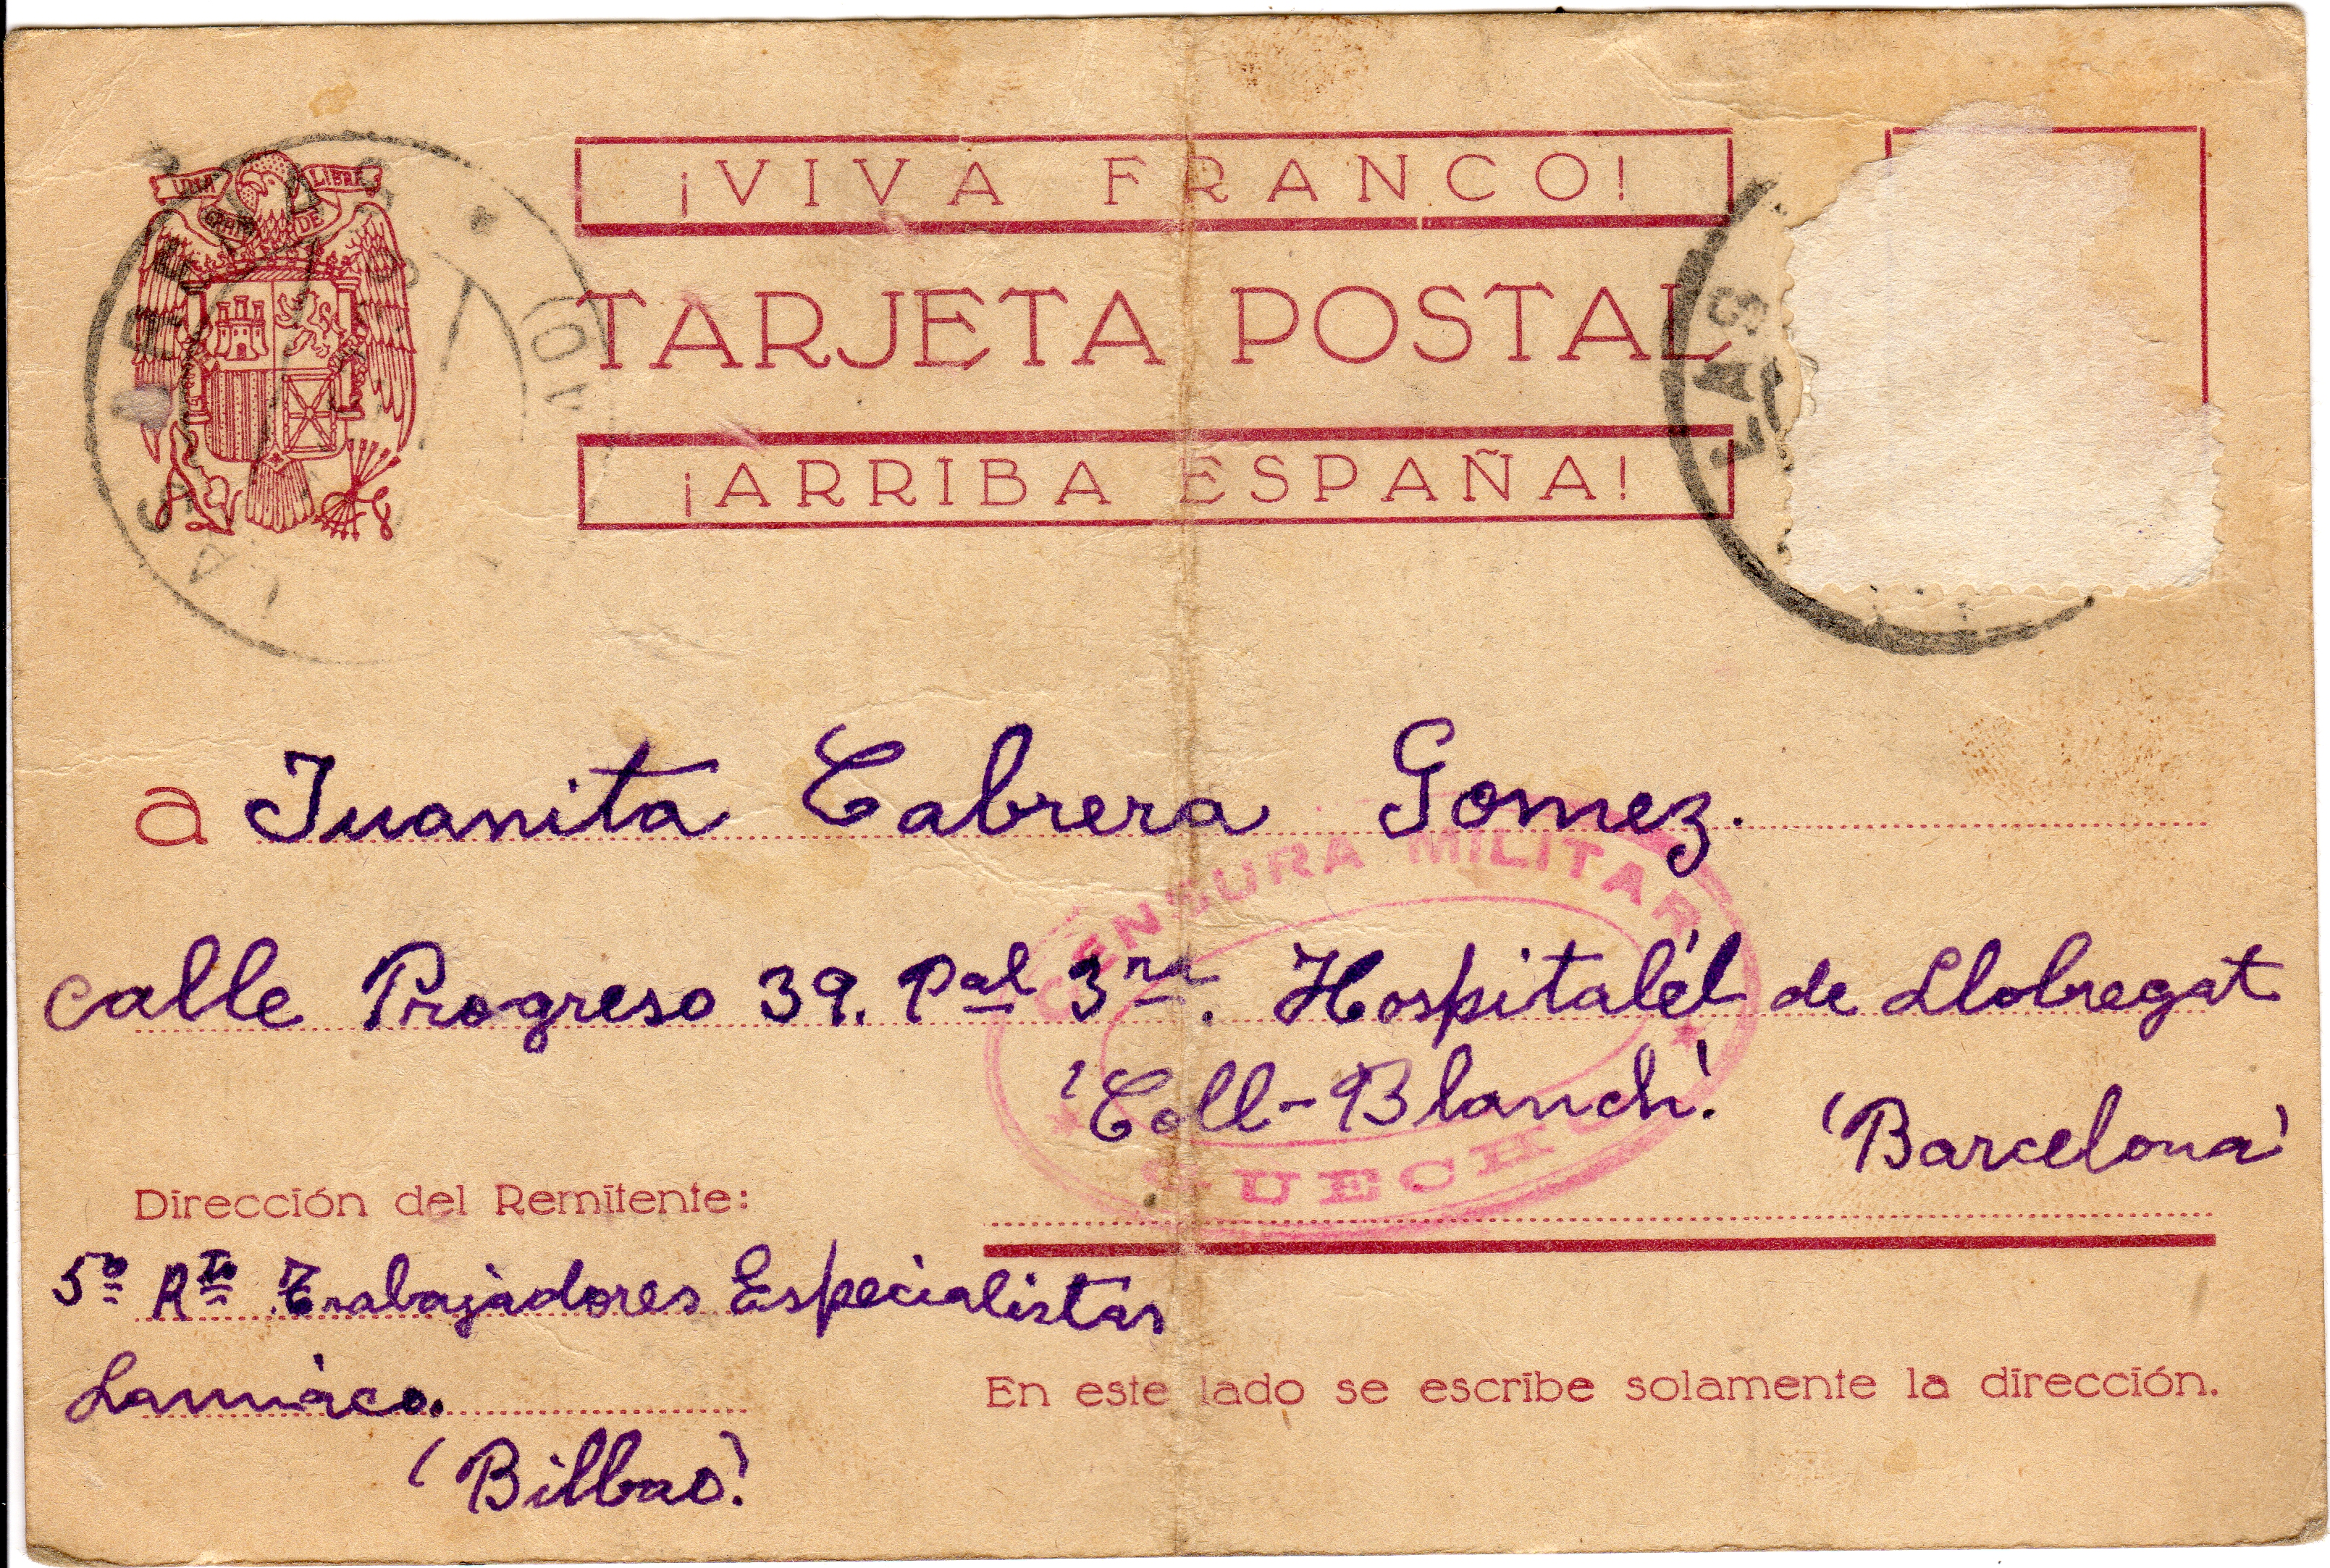 UNA GRANDE LIBRE
¡VIVA FRANCO!
TARJETA POSTAL
¡ARRIBA ESPAÑA!
LAS
a Juanita Cabrera Gomez.
calle Progreso 39. Pal 3ra. Hospitalét de Llobregat
(Coll-Blanch) (Barcelona)
CENSURA MILITAR
GUECHO
Dirección del Remitente:
5º Rto Trabajadores Especialistas
Lamiaco.
(Bilbao)
En este lado se escribe solamente la dirección.